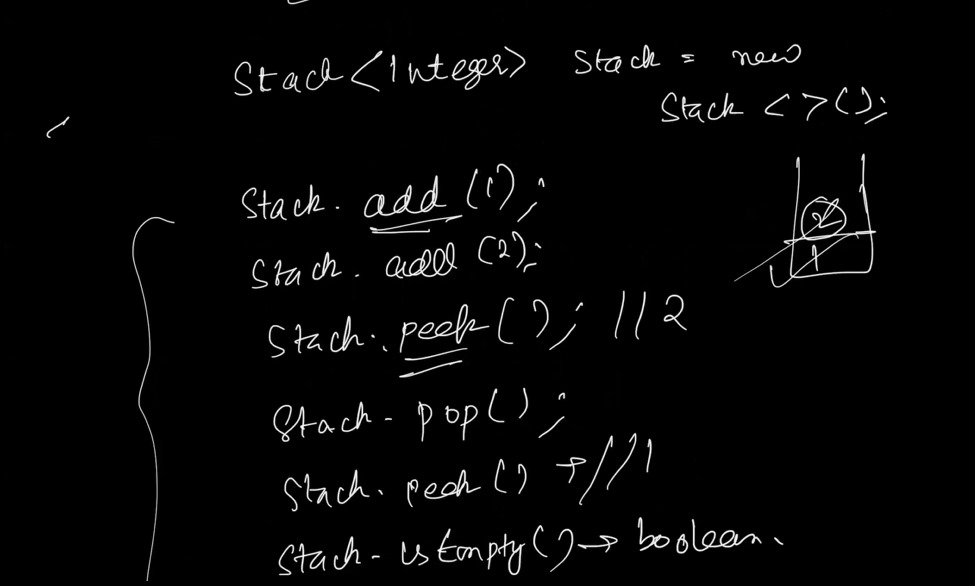 Stack<Integer> Stack = new
Stack <>();
Stack. add (1);
Stack. add (2);
Stack. peek (); // 2
Stack. pop();
Stack. peek () → // 1
Stack. isEmpty() → boolean.
2
1